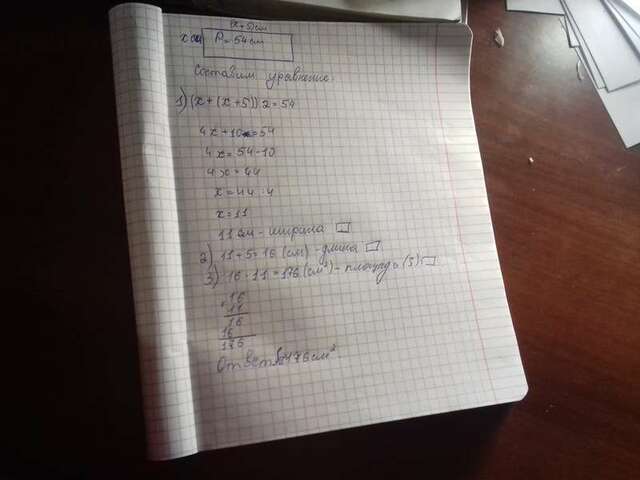 (x+5)см
x см P=54см
Составим уравнение:
1) (x+(x+5))·2=54
4x+10=54
4x=54-10
4x=44
x=44:4
x=11
11 см - ширина
2) 11+5=16 (см) - длина
3) 16·11=176 (см²) - площадь (S)
16
11
16
16
176
Ответ: 176 см².